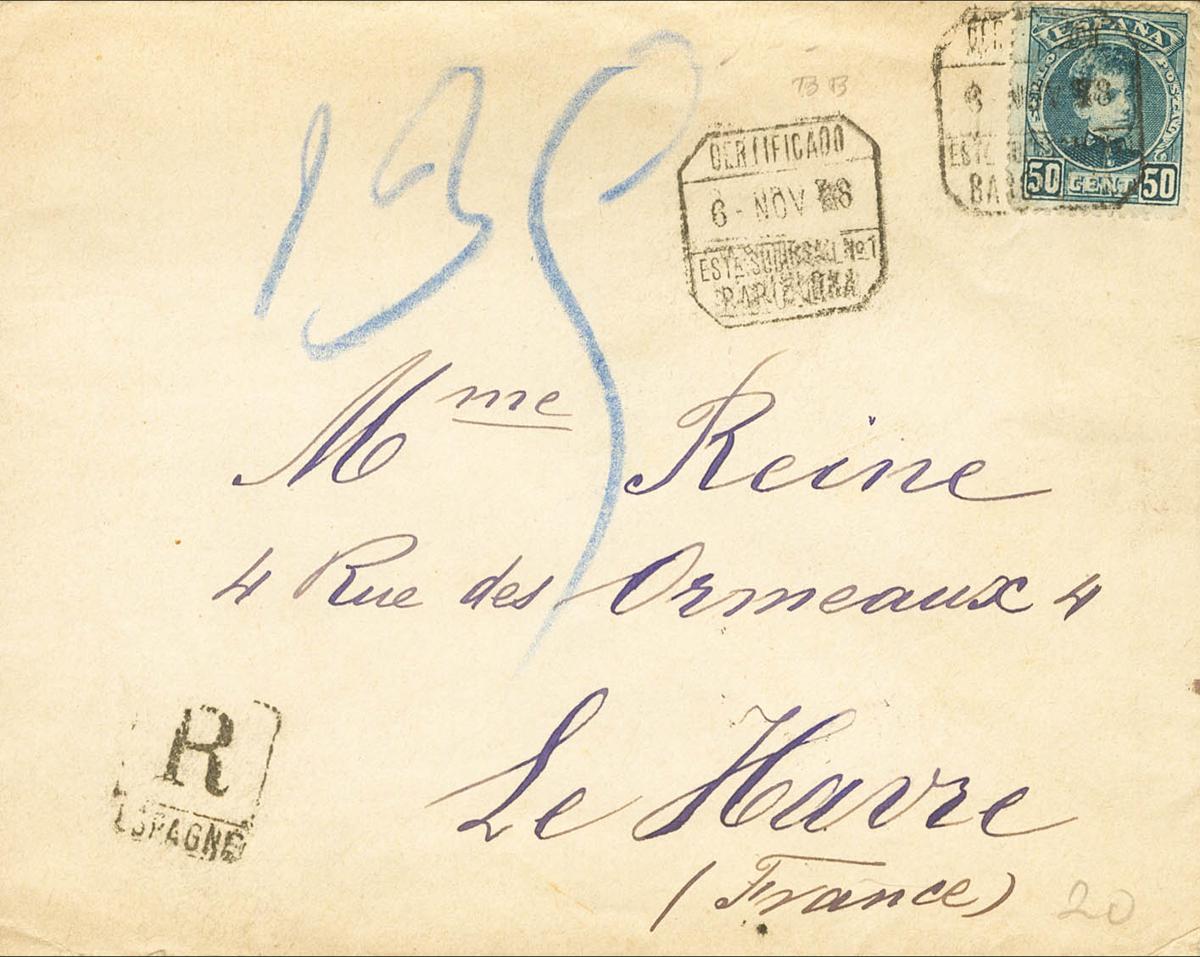 ESPAÑA
50 CENT 50
BB
CERTIFICADO
6 - NOV
ESTE. SUCURSAL Nº 1
BARCELONA
Mme Reine
4 Rue des Ormeaux 4
Le Havre
(France)
R
ESPAGNE
20